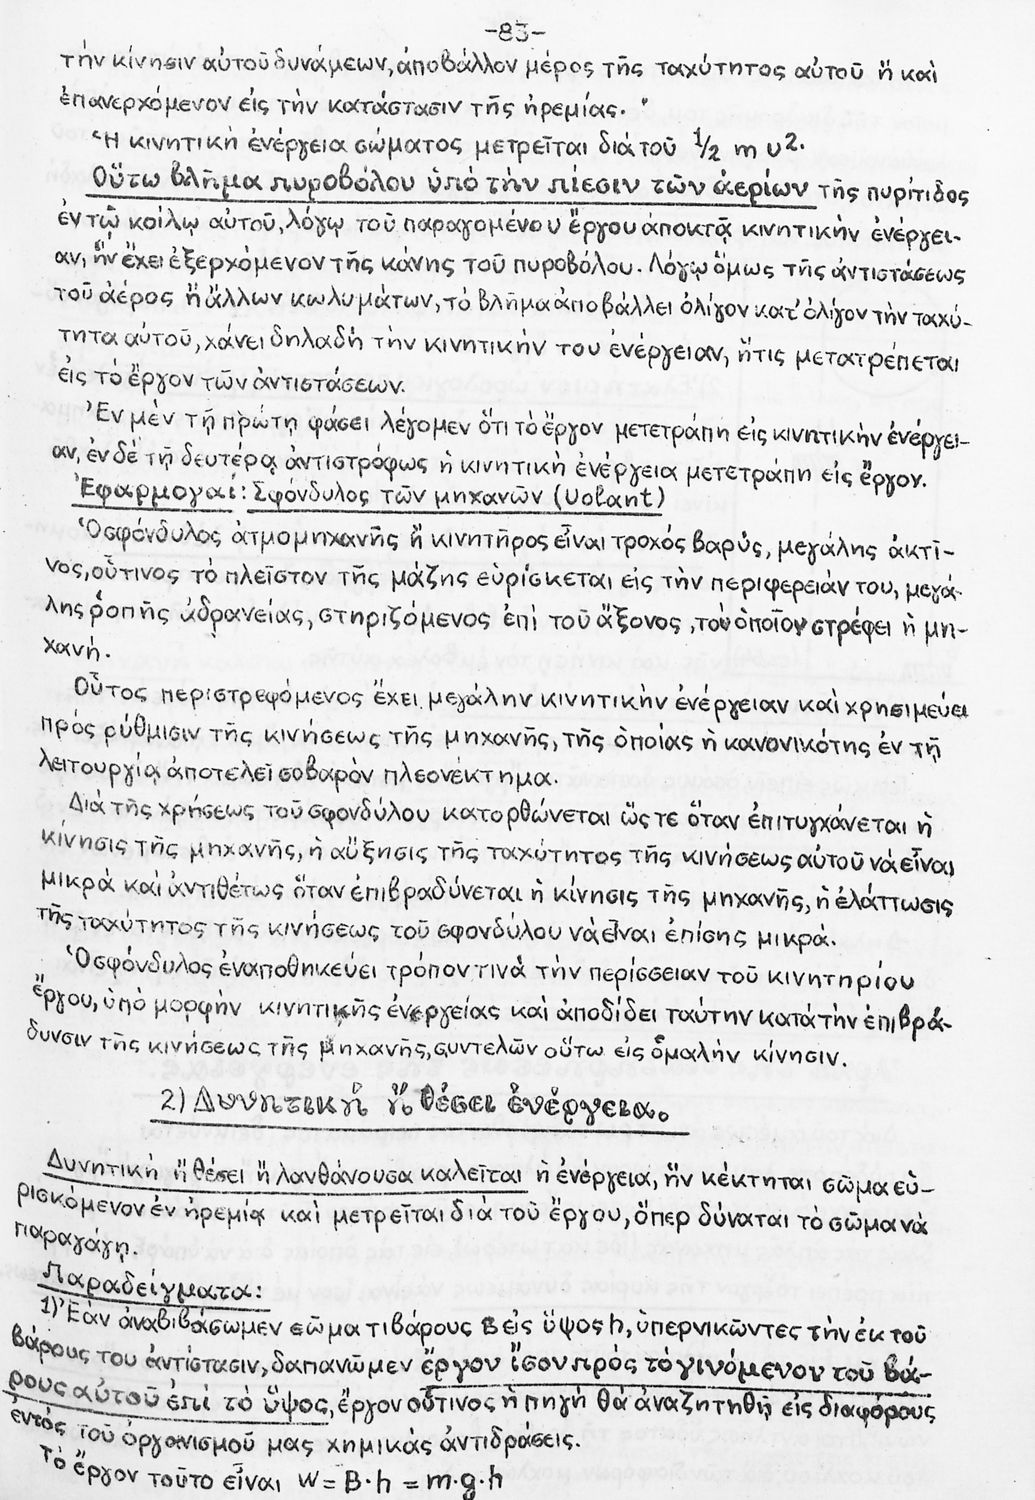 -83-
τὴν κίνησιν αὐτοῦ δυνάμεων, ἀποβάλλον μέρος τῆς ταχύτητος αὐτοῦ ἢ καὶ
ἐπανερχόμενον εἰς τὴν κατάστασιν τῆς ἠρεμίας.
Ἡ κινητικὴ ἐνέργεια σώματος μετρεῖται διὰ τοῦ 1/2 m υ².
Οὕτω βλῆμα πυροβόλου ὑπὸ τὴν πίεσιν τῶν ἀερίων τῆς πυρίτιδος
ἐν τῷ κοίλῳ αὐτοῦ, λόγῳ τοῦ παραγομένου ἔργου ἀποκτᾷ κινητικὴν ἐνέργει-
αν, ἣν ἔχει ἐξερχόμενον τῆς κάνης τοῦ πυροβόλου. Λόγῳ ὅμως τῆς ἀντιστάσεως
τοῦ ἀέρος ἢ ἄλλων κωλυμάτων, τὸ βλῆμα ἀποβάλλει ὀλίγον κατ' ὀλίγον τὴν ταχύ-
τητα αὐτοῦ, χάνει δηλαδὴ τὴν κινητικήν του ἐνέργειαν, ἥτις μετατρέπεται
εἰς τὸ ἔργον τῶν ἀντιστάσεων.
Ἐν μὲν τῇ πρώτῃ φάσει λέγομεν ὅτι τὸ ἔργον μετετράπη εἰς κινητικὴν ἐνέργει-
αν, ἐν δὲ τῇ δευτέρᾳ ἀντιστρόφως ἡ κινητικὴ ἐνέργεια μετετράπη εἰς ἔργον.
Ἐφαρμογαί: Σφόνδυλος τῶν μηχανῶν (Volant)
Ὁ σφόνδυλος ἀτμομηχανῆς ἢ κινητῆρος εἶναι τροχός βαρύς, μεγάλης ἀκτῖ-
νος, οὗτινος τὸ πλεῖστον τῆς μάζης εὑρίσκεται εἰς τὴν περιφερειάν του, μεγά-
λης ῥοπῆς ἀδρανείας, στηριζόμενος ἐπὶ τοῦ ἄξονος, τὸν ὁποῖον στρέφει ἡ μη-
χανή.
Οὗτος περιστρεφόμενος ἔχει μεγάλην κινητικὴν ἐνέργειαν καὶ χρησιμεύει
πρός ρύθμισιν τῆς κινήσεως τῆς μηχανῆς, τῆς ὁποίας ἡ κανονικότης ἐν τῇ
λειτουργίᾳ ἀποτελεῖ σοβαρὸν πλεονέκτημα.
Διὰ τῆς χρήσεως τοῦ σφονδύλου κατορθώνεται ὥστε ὅταν ἐπιτυγχάνεται ἡ
κίνησις τῆς μηχανῆς, ἡ αὔξησις τῆς ταχύτητος τῆς κινήσεως αὐτοῦ νὰ εἶναι
μικρὰ καὶ ἀντιθέτως ὅταν ἐπιβραδύνεται ἡ κίνησις τῆς μηχανῆς, ἡ ἐλάττωσις
τῆς ταχύτητος τῆς κινήσεως τοῦ σφονδύλου νὰ εἶναι ἐπίσης μικρά.
Ὁ σφόνδυλος ἐναποθηκεύει τρόπον τινὰ τὴν περίσσειαν τοῦ κινητηρίου
ἔργου, ὑπὸ μορφὴν κινητικῆς ἐνεργείας καὶ ἀποδίδει ταύτην κατὰ τὴν ἐπιβρά-
δυνσιν τῆς κινήσεως τῆς μηχανῆς, συντελῶν οὕτω εἰς ὁμαλὴν κίνησιν.
2) Δυνητικὴ ἢ θέσει ἐνέργεια.
Δυνητικὴ ἢ θέσει ἢ λανθάνουσα καλεῖται ἡ ἐνέργεια, ἣν κέκτηται σῶμα εὑ-
ρισκόμενον ἐν ἠρεμίᾳ καὶ μετρεῖται διὰ τοῦ ἔργου, ὅπερ δύναται τὸ σῶμα νὰ
παραγάγῃ.
Παραδείγματα:
1) Ἐὰν ἀναβιβάσωμεν σῶμα τι βάρους B εἰς ὕψος h, ὑπερνικῶντες τὴν ἐκ τοῦ
βάρους του ἀντίστασιν, δαπανῶμεν ἔργον ἴσον πρὸς τὸ γινόμενον τοῦ βά-
ρους αὐτοῦ ἐπὶ τὸ ὕψος, ἔργον οὗτινος ἡ πηγὴ θὰ ἀναζητηθῇ εἰς διαφόρους
ἐντός τοῦ ὀργανισμοῦ μας χημικὰς ἀντιδράσεις.
Τὸ ἔργον τοῦτο εἶναι W = B·h = m·g·h